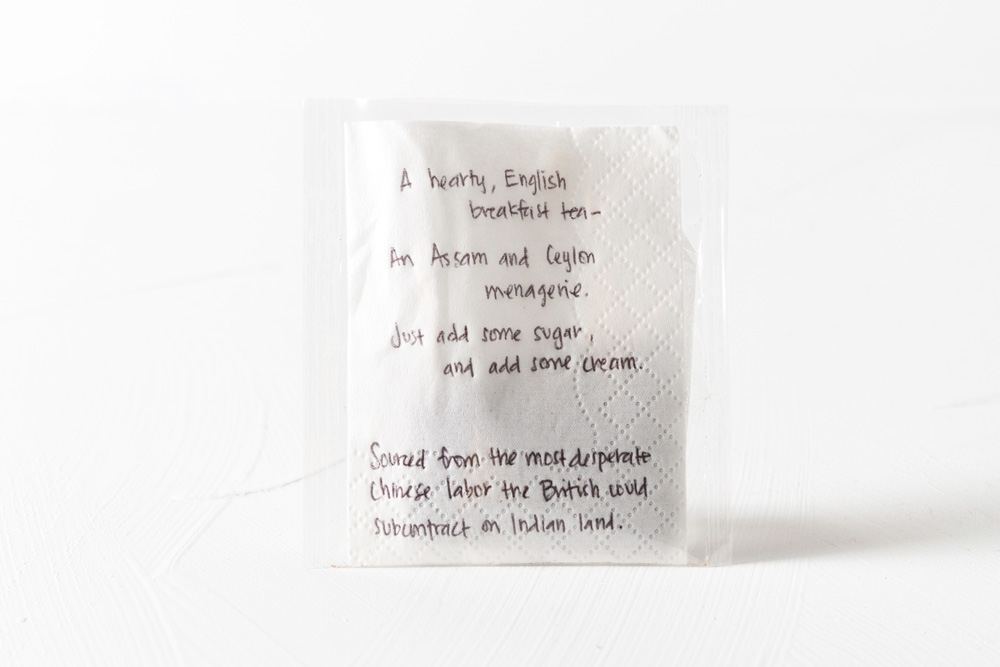 A hearty, English
breakfast tea-
An Assam and Ceylon
menagerie.
Just add some sugar,
and add some cream.
Sourced from the most desperate
Chinese labor the British could
subcontract on Indian land.